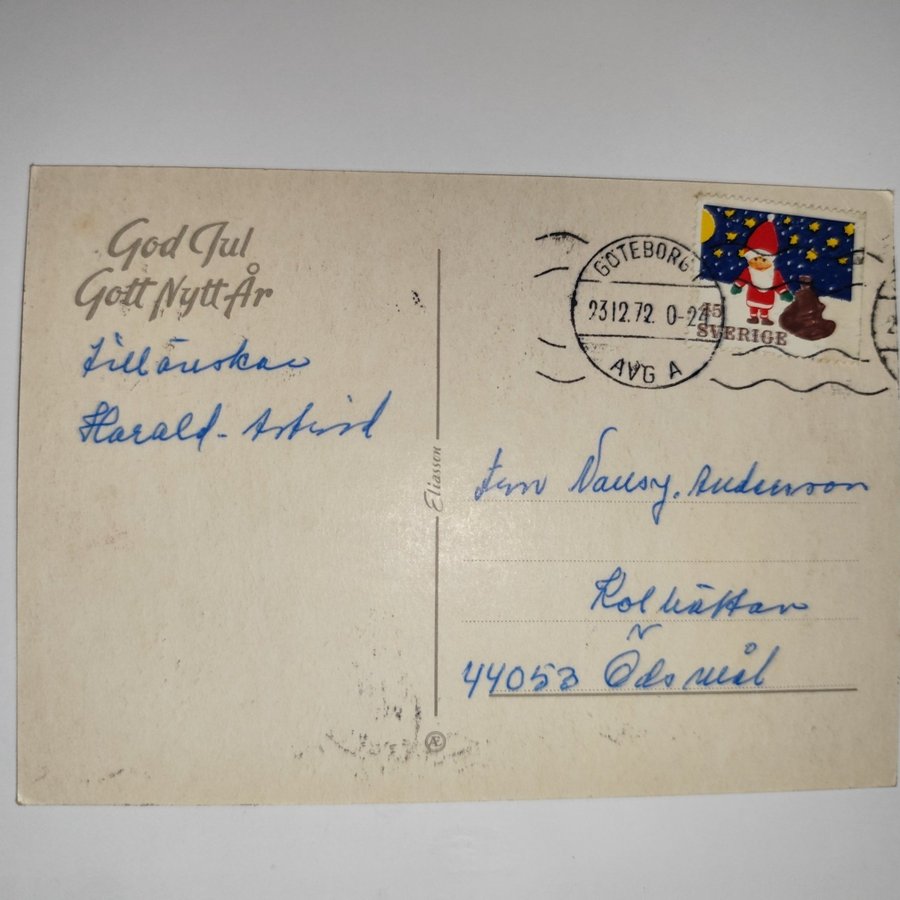 God Jul
Gott Nytt År
tillönskar
Harald - Astrid
Eliasson
Æ
GÖTEBORG
23 12.72 0-24
AVG A
45
SVERIGE
Nansy. Andersson
Kolhättan
44053 Ödsmål